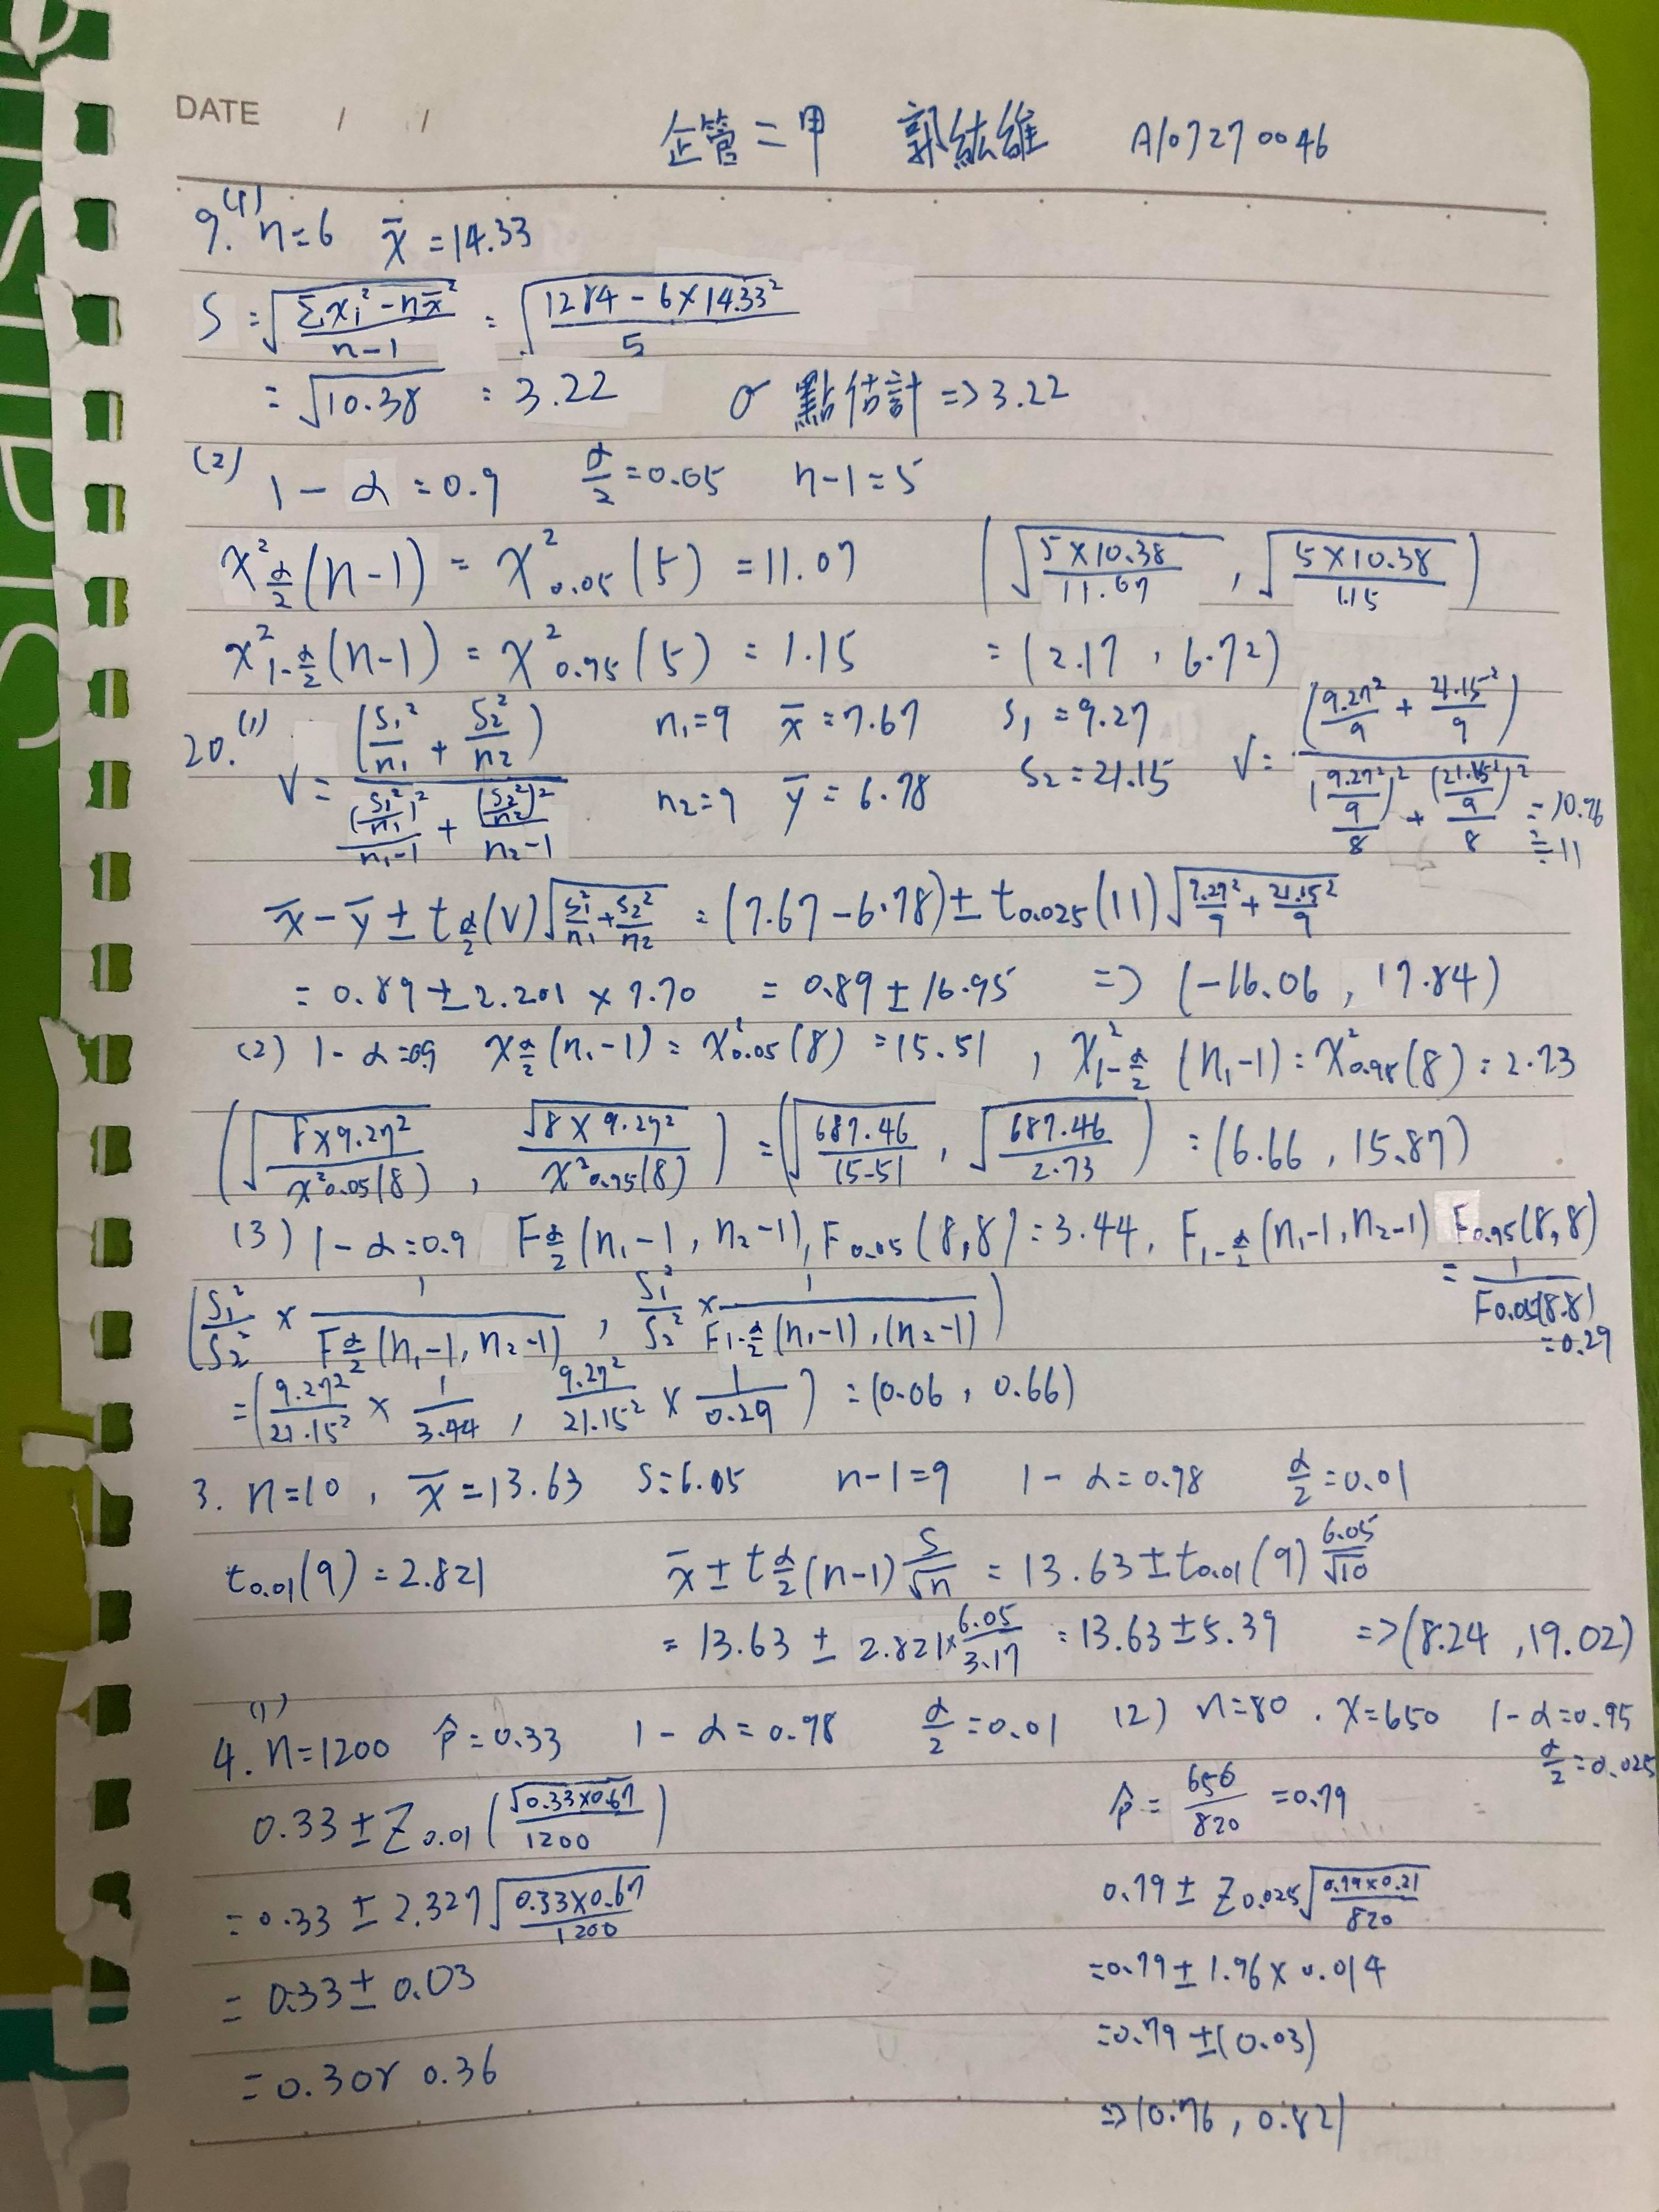 DATE / /
企管二甲 郭紘維 A107270046
9.(1) n=6 x̄=14.33
S=√((Σxi²-nx̄²)/(n-1)) = √((1284-6×14.33²)/5)
=√10.38 = 3.22 σ 點估計 => 3.22
(2) 1-α=0.9 α/2=0.05 n-1=5
χ²α/2(n-1) = χ²0.05(5) = 11.07 (√(5×10.38/11.07), √(5×10.38/1.15))
χ²1-α/2(n-1) = χ²0.95(5) = 1.15 = (2.17, 6.72)
20.(1) V = (S1²/n1 + S2²/n2) / ((S1²/n1)²/(n1-1) + (S2²/n2)²/(n2-1)) n1=9 x̄=7.67 S1=9.27 V = (9.27²/9 + 21.15²/9) / ((9.27²/9)²/8 + (21.15²/9)²/8) = 10.96 ≒ 11
n2=9 ȳ=6.78 S2=21.15
x̄-ȳ ± tα/2(V)√(S1²/n1+S2²/n2) = (7.67-6.78) ± t0.025(11)√(9.27²/9+21.15²/9)
= 0.89 ± 2.201 × 7.70 = 0.89 ± 16.95 => (-16.06, 17.84)
(2) 1-α=0.9 χα/2(n1-1) = χ²0.05(8) = 15.51, χ²1-α/2(n1-1) = χ²0.95(8) = 2.73
(√(8×9.27²/χ²0.05(8)), √8×9.27²/χ²0.95(8)) = (√(687.46/15.51), √(687.46/2.73)) = (6.66, 15.87)
(3) 1-α=0.9 Fα/2(n1-1, n2-1), F0.05(8,8) = 3.44, F1-α/2(n1-1, n2-1) F0.95(8,8)
= 1/F0.05(8.8) = 0.29
(S1²/S2² × 1/Fα/2(n1-1, n2-1), S1²/S2² × 1/F1-α/2(n1-1),(n2-1))
= (9.27²/21.15² × 1/3.44, 9.27²/21.15² × 1/0.29) = (0.06, 0.66)
3. n=10, x̄=13.63 S=6.05 n-1=9 1-α=0.98 α/2=0.01
t0.01(9) = 2.821 x̄ ± tα/2(n-1) S/√n = 13.63 ± t0.01(9) 6.05/√10
= 13.63 ± 2.821 × 6.05/3.17 = 13.63 ± 5.39 => (8.24, 19.02)
4.(1) n=1200 p̂=0.33 1-α=0.98 α/2=0.01
0.33 ± Z0.01(√0.33×0.67/1200)
= 0.33 ± 2.327√(0.33×0.67/1200)
= 0.33 ± 0.03
= 0.3 or 0.36
(2) n=80, x=650 1-α=0.95
α/2=0.025
p̂ = 650/820 = 0.79
0.79 ± Z0.025√(0.79×0.21/820)
= 0.79 ± 1.96 × 0.014
= 0.79 ± (0.03)
=> (0.76, 0.82)